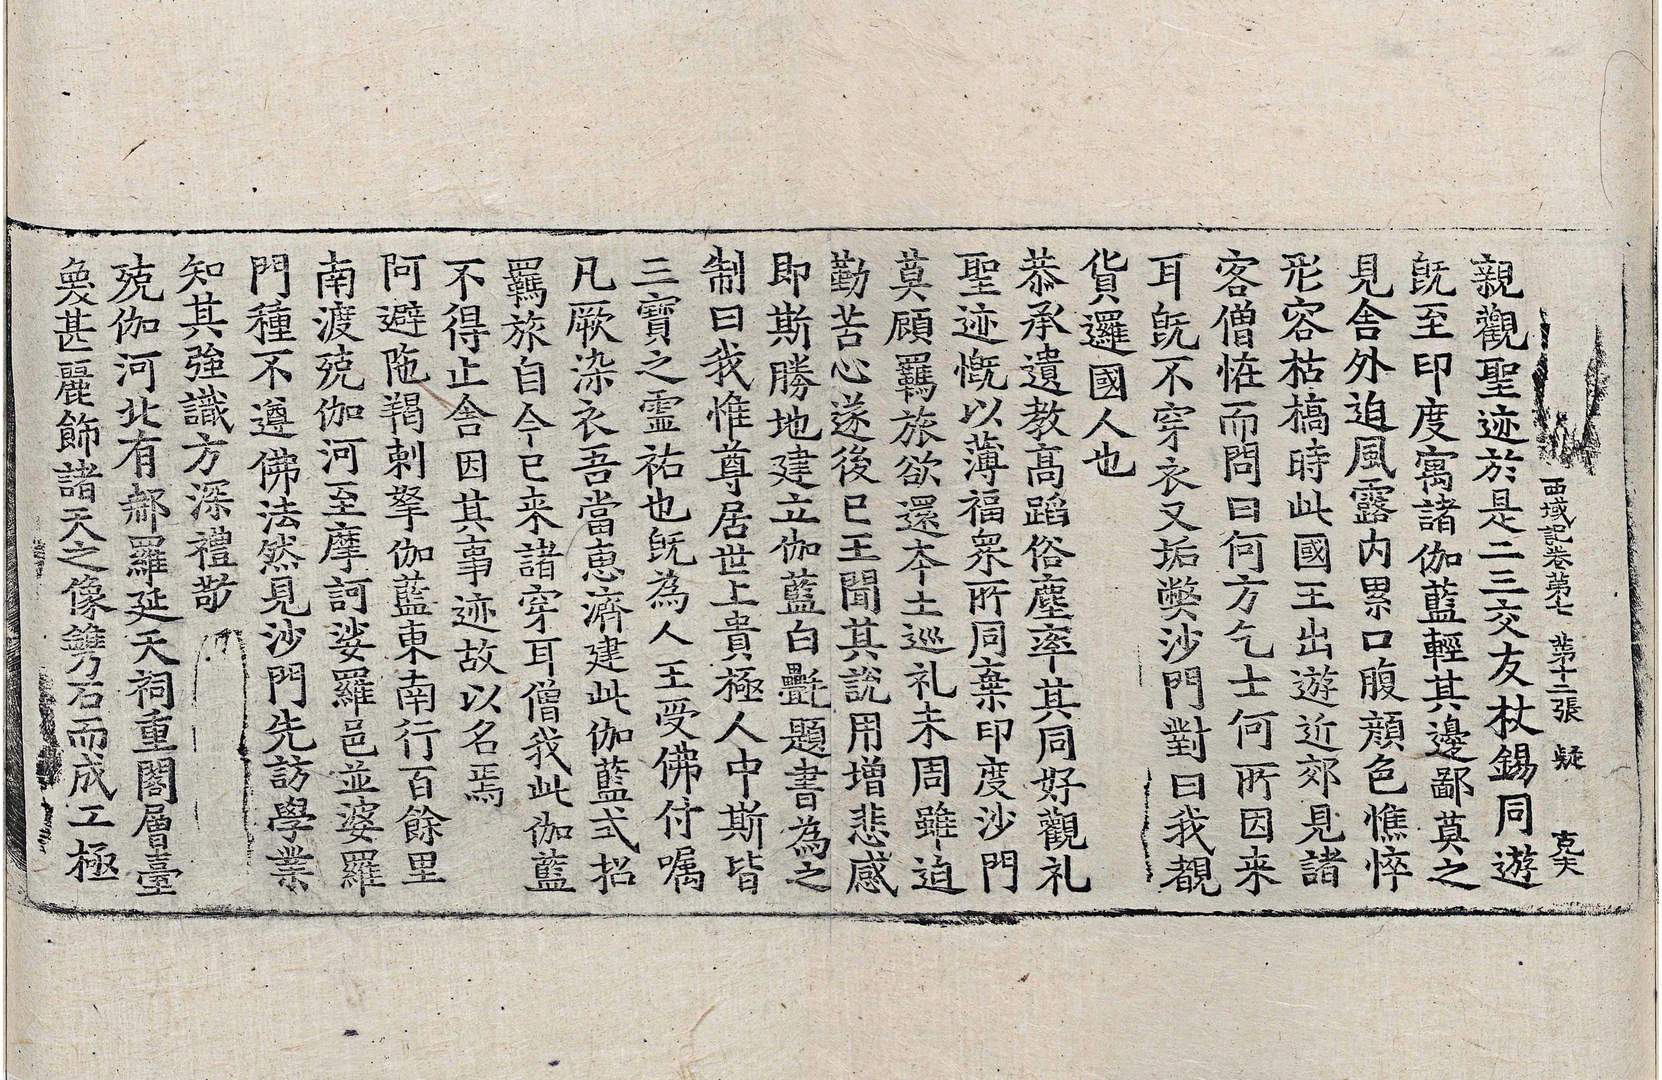 西域記卷第七 第十二張 疑 克夫
親觀聖迹於是二三交友杖錫同遊
旣至印度寓諸伽藍輕其邊鄙莫之
見舍外迫風露内累口腹顔色憔悴
形容枯槁時此國王出遊近郊見諸
客僧恠而問曰何方乞士何所因来
耳旣不穿衣又垢弊沙門對曰我覩
貨邏國人也
恭承遺教髙蹈俗塵率其同好觀礼
聖迹慨以薄福衆所同棄印度沙門
莫顧羈旅欲還本土巡礼未周雖迫
勤苦心遂後已王聞其說用增悲感
即斯勝地建立伽藍白㲲題書為之
制曰我惟尊居世上貴極人中斯皆
三寶之靈祐也旣為人王受佛付嘱
凡厥染衣吾當惠濟建此伽藍式招
羈旅自今已来諸穿耳僧我此伽藍
不得止舍因其事迹故以名焉
阿避陁羯剌拏伽藍東南行百餘里
南渡殑伽河至摩訶娑羅邑並婆羅
門種不遵佛法然見沙門先訪學業
知其強識方深禮敬
殑伽河北有郝羅延天祠重閣層臺
奐甚麗飾諸天之像鐫石而成工極